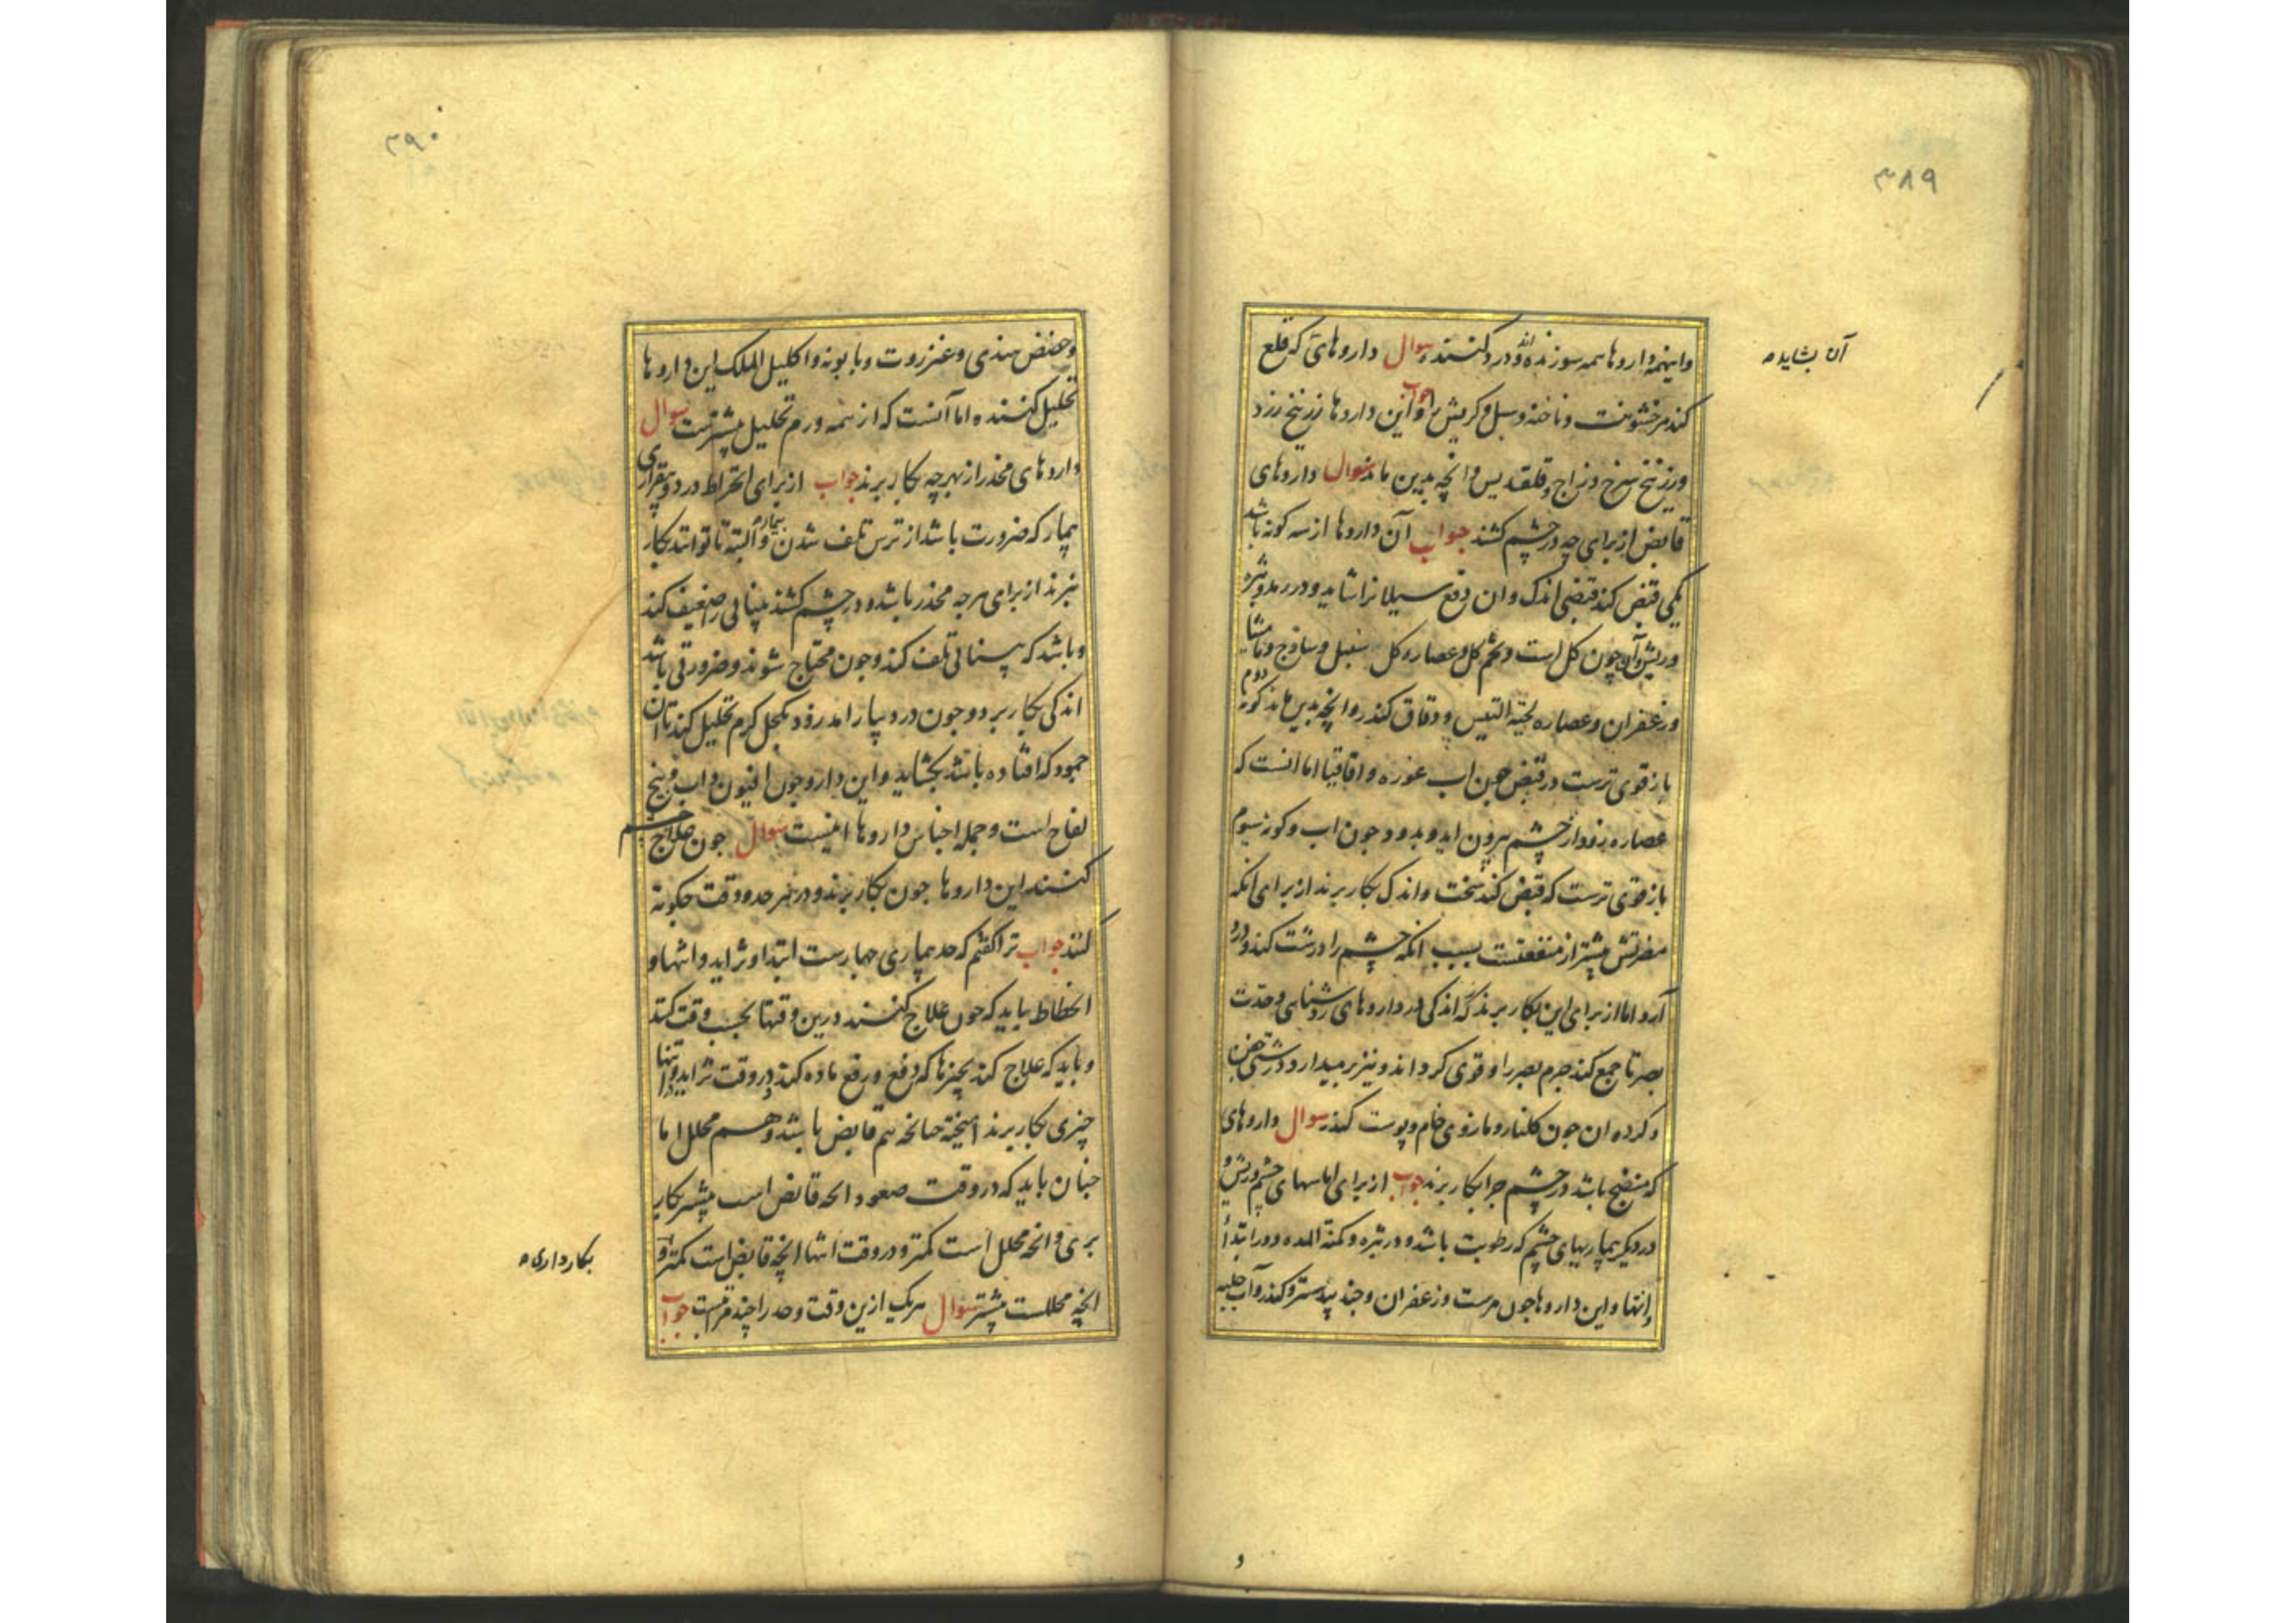 ۳۸۹
واینهمه داروها همه سوزنده و درد کننده سوال داروهائی که قلع
آن بشاید
کند مر خشونت و ناخنه و سبل و کریش را جواب این داروها زرنیخ زرد
وزرنیخ سرخ و زاج و قلقدیس و انچه بدین ماند سوال داروهای
قابض از برای چه در چشم کشند جواب آن داروها از سه کونه باشد
یکی قبض کند قبضی اندک و ان دفع سیلانرا شاید و در رمد و بثره
وریش و آن چون کل است و تخم کل و عصاره کل سنبل و ساذج و مامیثا
وزعفران و عصاره لحیة التیس و دقاق کندر و انچه بدین ماند کونه دوم
باز قوی ترست در قبض چون اب غوره و اقاقیا اما انست که
عصاره زود از چشم بیرون اید و بدود چون اب و کونه سیوم
باز قوی ترست که قبض کند سخت و اندک بکار برند از برای انکه
مضرتش بیشتر از منفعتست بسبب انکه چشم را درشت کند و درد
آرد اما از برای این بکار برند که اندکی در داروهای روشنایی وحدت
بصر تا جمع کند جرم بصر را و قوی کرداند و نیز بر میدارد درشتی جفن
و کرده ان چون کلنار و مازوی خام و پوست کندر سوال داروهای
که منضج باشد در چشم چرا بکار برند جواب از برای اماسهای چشم و ریش و
در دیکر بیماریهای چشم که رطوبت باشد و در بثره و کمنة المده و در ابتدا
وانتها و این داروها چون مرست و زعفران و جند بیدستر و کندر و آب حلبه
۳۹۰
وحضض هندی و عنزروت و بابونه و اکلیل الملک این داروها
تحلیل کننده اما آنست که از همه ورم تحلیل بیشترست سوال
داروهای مخدر از بهر چه بکار برند جواب از برای افراط درد و بیقراری
بیمار که ضرورت باشد از ترس تلف شدن بیمار و البته تا توانند بکار
نبرند از برای هر چه مخدر باشد و در چشم کشند بینائی را ضعیف کند
و باشد که بینائی تلف کند و چون محتاج شوند و ضرورتی باشد
اندکی بکار برد و چون درد بیارامد زود بکحل کرم تحلیل کند تا ان
جمود که افتاده باشد بکشاید و این دارو چون افیون و اب و بیخ
لفاح است و جمله اجناس داروها اینست سوال چون علاج چشم
کنند این داروها چون بکار برند و در هر حد و وقت چکونه
کنند جواب ترا کفتم که حد بیماری چهارست ابتدا و تزاید و انتها و
انحطاط باید که چون علاج کنند درین وقتها بحسب وقت کند
و باید که علاج کند بچیزها که دفع و رفع ماده کند در وقت تزاید و انتها
چیزی بکار برند امیخته چنانکه هم قابض باشد و هم محلل اما
چنان باید که در وقت صعود انچه قابض است بیشتر بکار
بری و انچه محلل است کمتر و در وقت انتها انچه قابض است کمتر و
بکار داری
انچه محللست بیشتر سوال هر یک ازین وقت و حد را چند مرتبت جواب